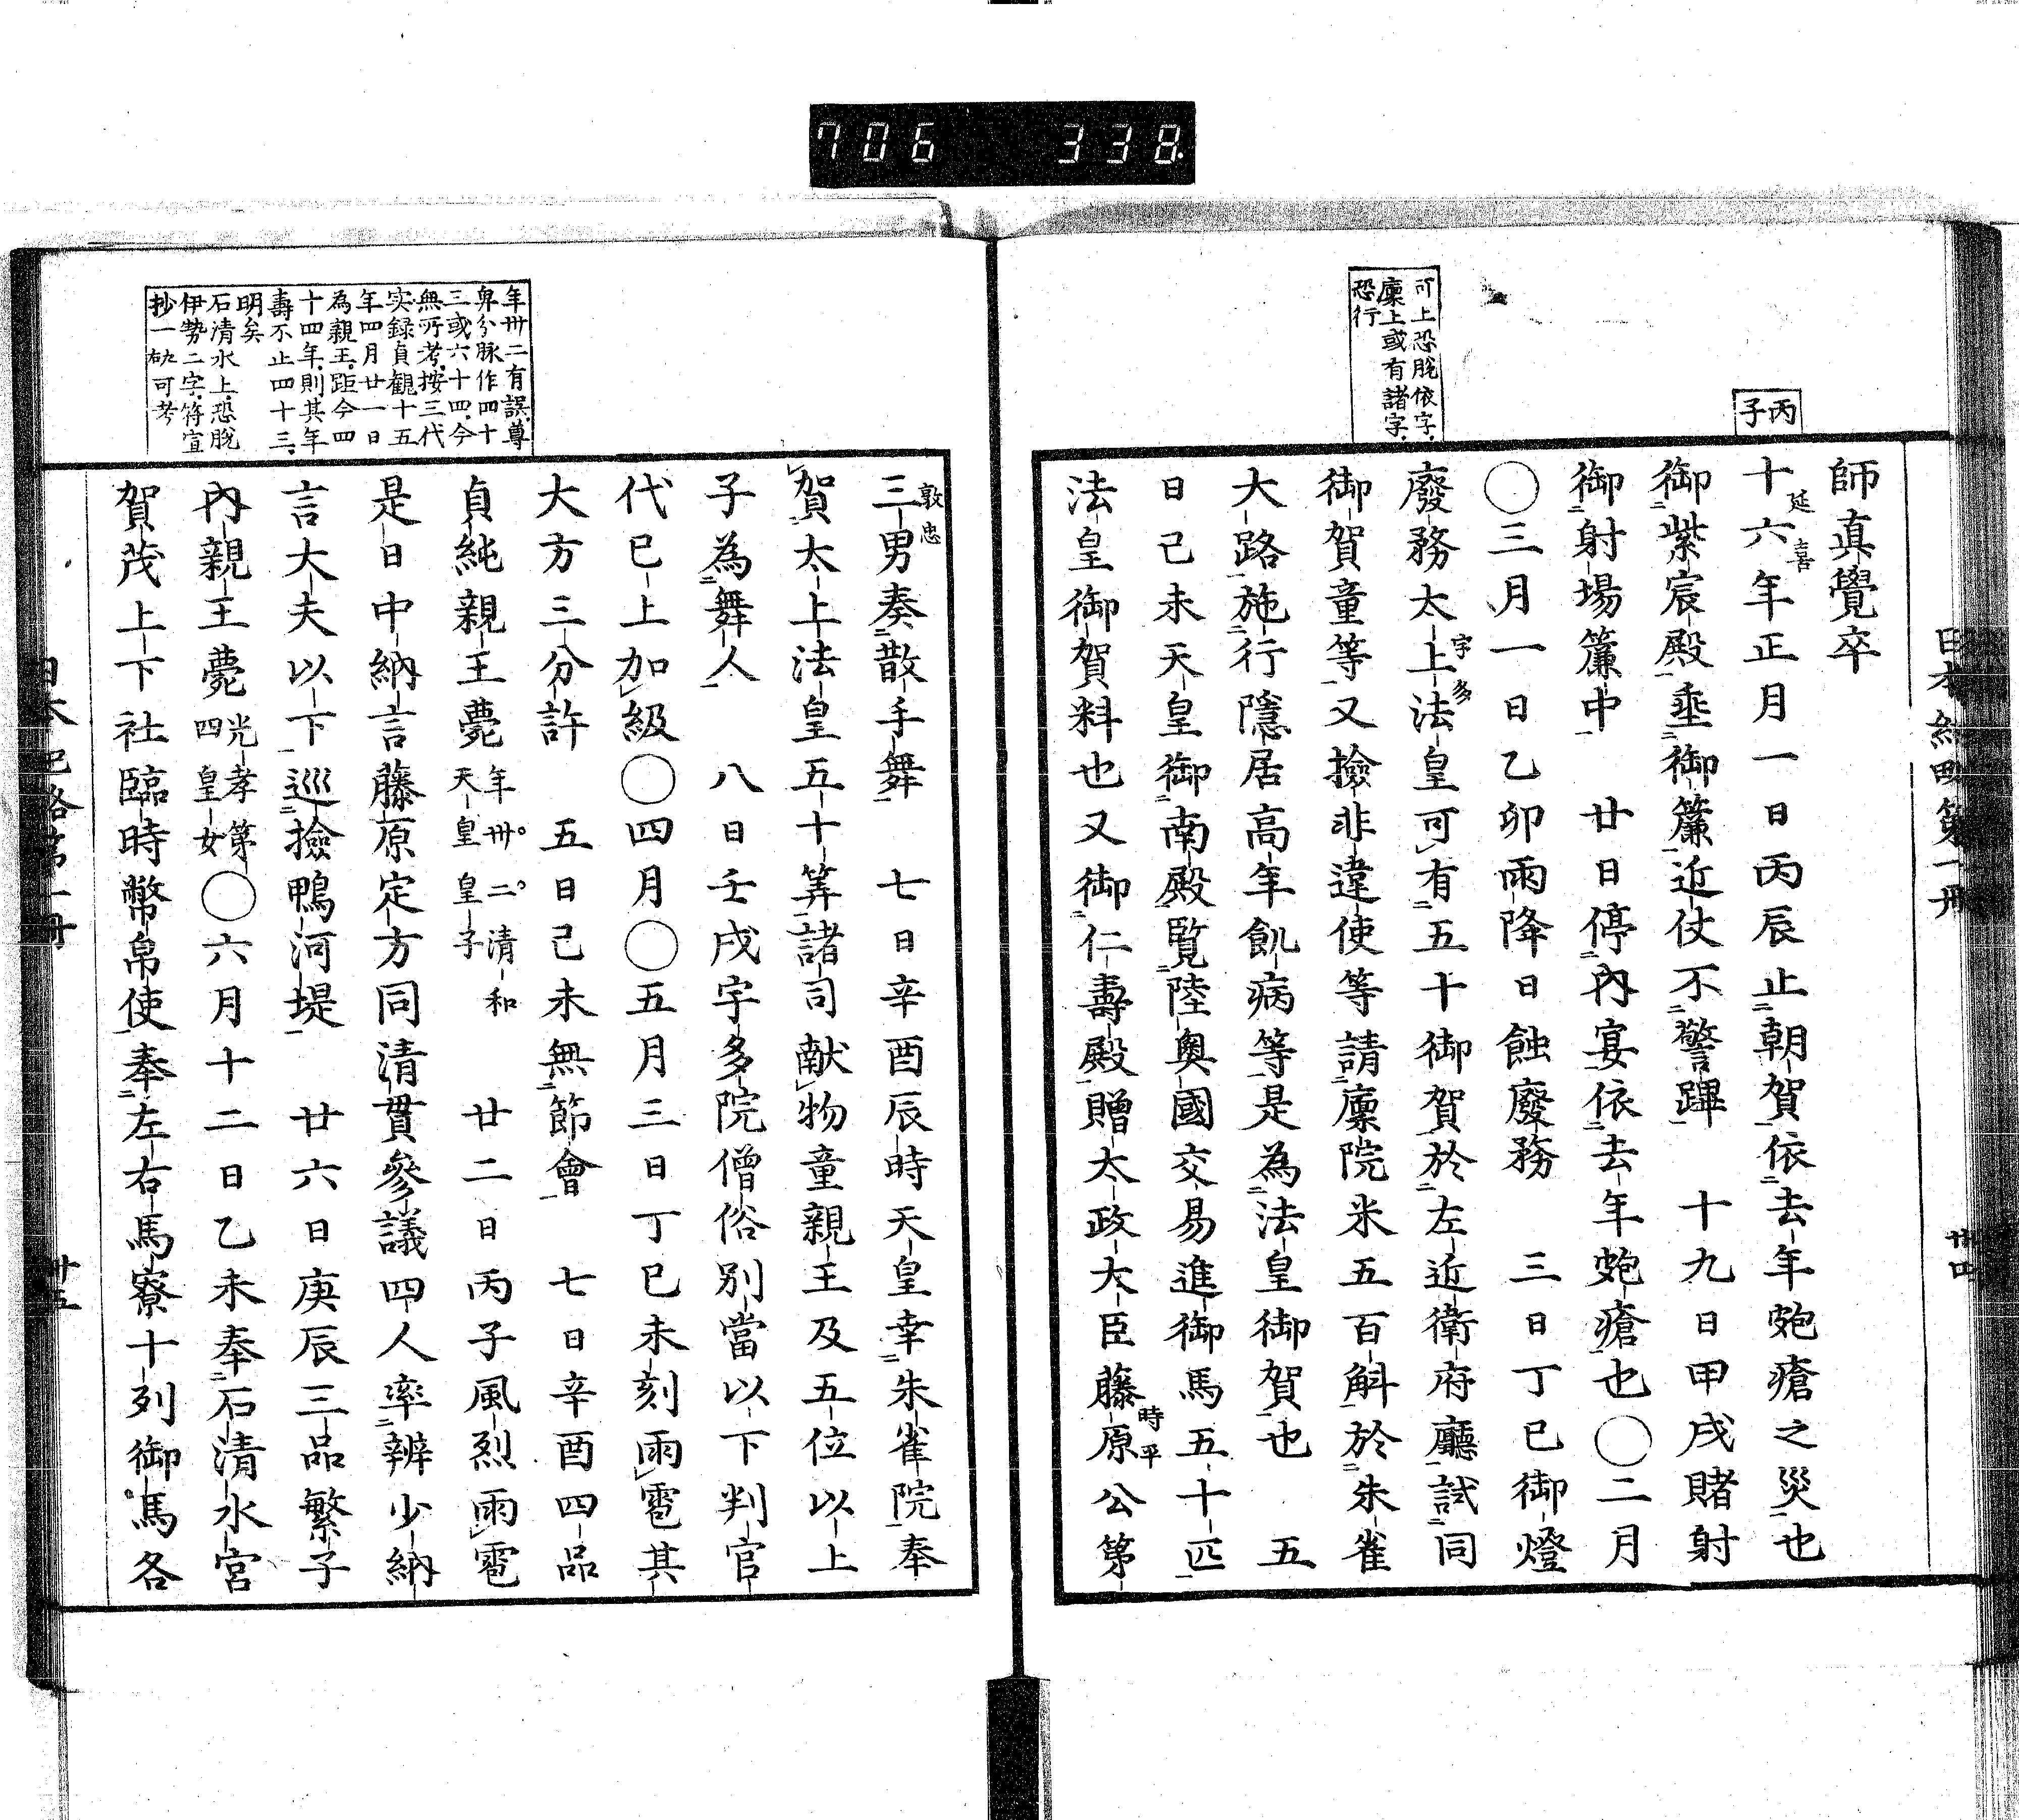 706 338
日本紀畧第一冊 卅四
丙子
可上恐脱依字、
廩上或有諸字、
恐行
師真覺卒
十六年正月一日丙辰止朝賀依去年皰瘡之災也
延喜
御紫宸殿垂御簾近仗不警蹕 十九日甲戌賭射
御射場簾中 廿日停內宴依去年皰瘡也〇二月
〇三月一日乙卯雨降日蝕廢務 三日丁巳御燈
廢務太上法皇可有五十御賀於左近衛府廳試同
宇多
御賀童等又撿非違使等請廩院米五百斛於朱雀
大路施行隱居高年飢病等是為法皇御賀也 五
日己未天皇御南殿覽陸奧國交易進御馬五十匹
法皇御賀料也又御仁壽殿贈太政大臣藤原公第
時平
年卅二有誤、尊
卑分脉作四十
三或六十四、今
無所考、按三代
实録貞觀十五
年四月廿一日
為親王、距今四
十四年、則其年
壽不止四十三、
明矣
石清水上、恐脱
伊勢二字、符宣
抄一欤可考
三男奏散手舞 七日辛酉辰時天皇幸朱雀院奉
敦忠
賀太上法皇五十筭諸司献物童親王及五位以上
子為舞人 八日壬戌宇多院僧俗別當以下判官
代已上加級〇四月〇五月三日丁巳未刻雨雹其
大方三分許 五日己未無節會 七日辛酉四品
貞純親王薨年卅二清和天皇皇子 廿二日丙子風烈雨雹
是日中納言藤原定方同清貫參議四人率辨少納
言大夫以下巡撿鴨河堤 廿六日庚辰三品繁子
內親王薨光孝第四皇女〇六月十二日乙未奉石清水宮
賀茂上下社臨時幣帛使奉左右馬寮十列御馬各
日本紀略第一冊 卅五